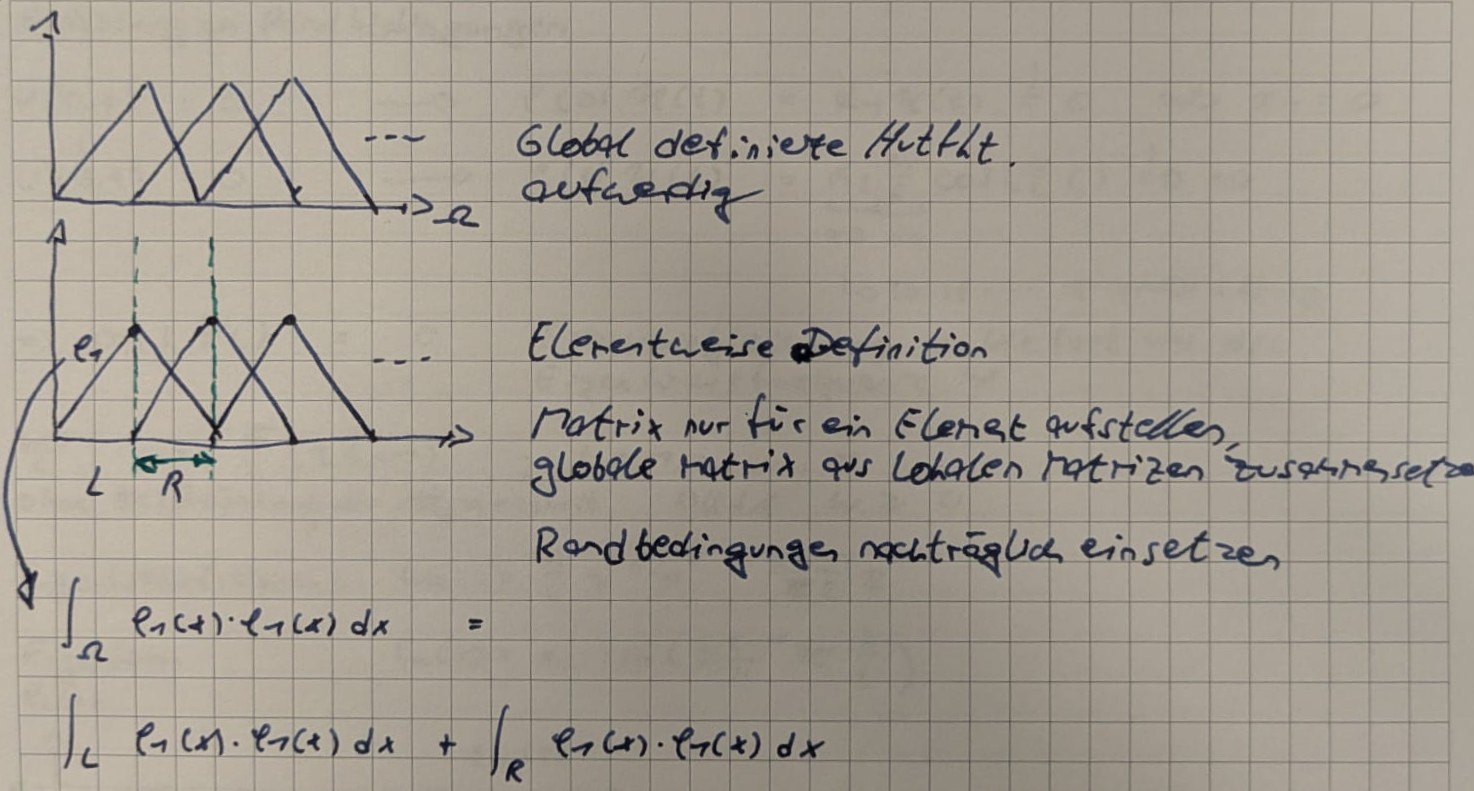 Global definierte Hutfkt.
aufwendig
Ω
φ₁
Elementweise Definition
Matrix nur für ein Element aufstellen,
globale Matrix aus lokalen Matrizen zusammensetze
L R
Randbedingungen nachträglich einsetzen
∫_Ω φ₁(x)·φ₁(x) dx =
∫_L φ₁(x)·φ₁(x) dx + ∫_R φ₁(x)·φ₁(x) dx